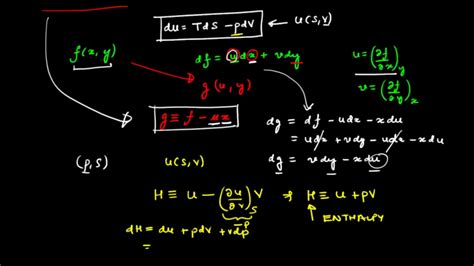 du = TdS - pdV
U(S,V)
f(x,y)
df = u dx + v dy
u = (∂f/∂x)_y
v = (∂f/∂y)_x
g(u,y)
g ≡ f - ux
dg = df - udx - xdu
= udx + vdy - udx - xdu
dg = vdy - xdu
(p,S)
U(S,V)
H ≡ U - (∂U/∂V)_S V ⇒ H ≡ U + pV
-p
ENTHALPY
dH = du + pdV + Vdp
=